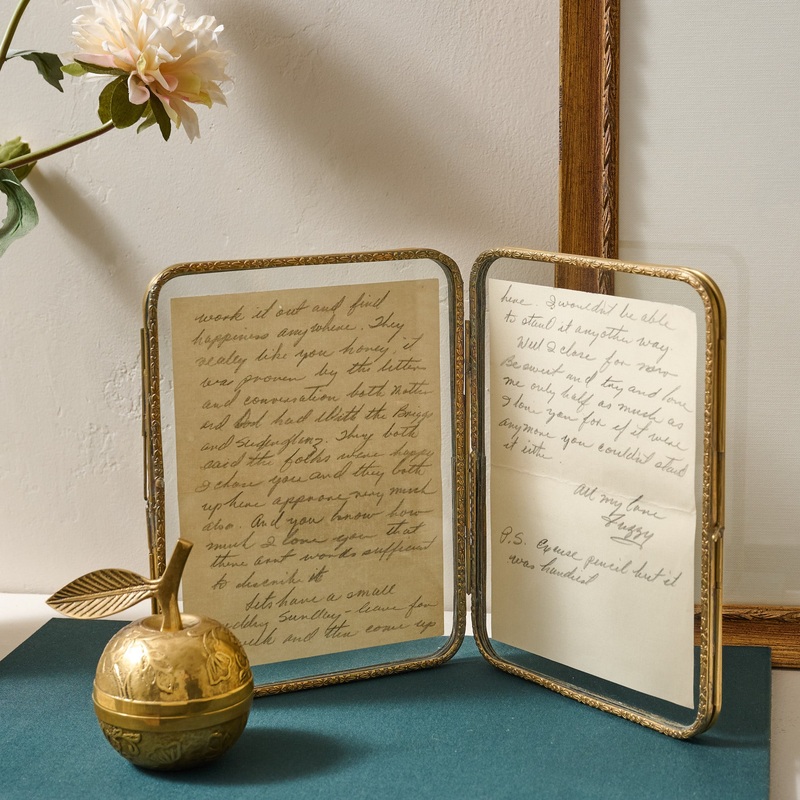 work it out and find
happiness anywhere. They
really like you honey, it
was proven by the letter
and conversation both Mother
and Dad had with the
and They both
said the folks were happy
I chose you and they both
up here approve very much
also. And you know how
much I love you that
there aint words sufficient
to describe it
Lets have a small
Sunday - leave for
and then come up
here. I wouldnt be able
to stand it anyother way
Well I close for now
Be sweet and try and love
me only half as much as
I love you for if it were
anymore you couldn't stand
it either.
All my love
Fuzzy
P.S. Excuse pencil but it
was handiest